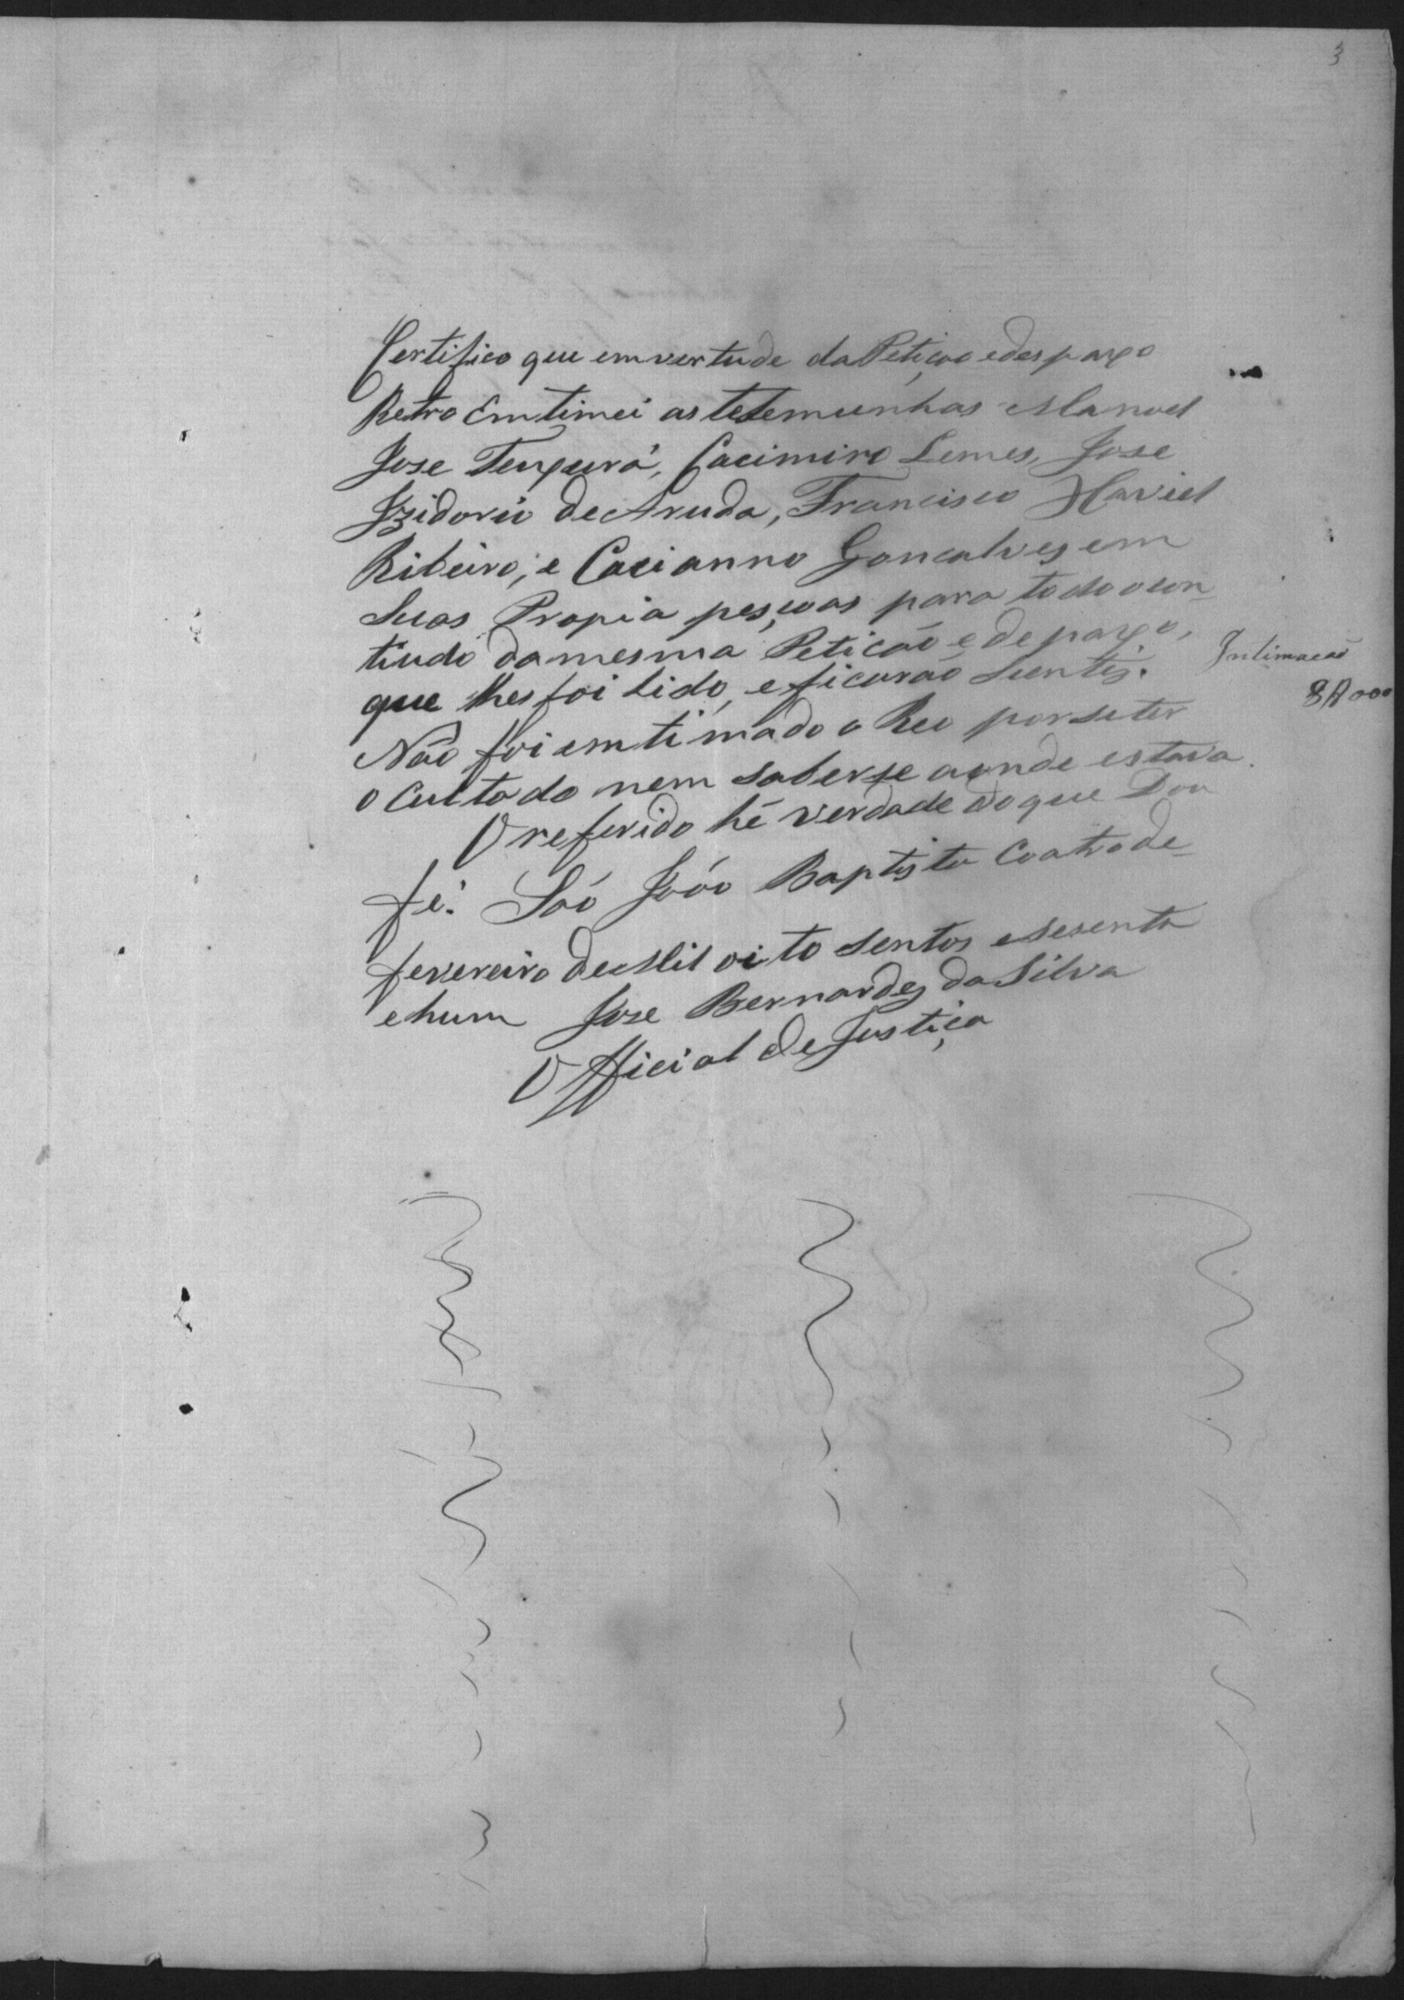 3
Certifico que em vertude da Petiçao e despaxo
Retro Emtimei as testemunhas Manoel
Jose Tenxeira, Cacimiro Lemes, Jose
Izidorio de Aruda, Francisco Xaviel
Ribeiro, e Cacianno Goncalves em
Suas Propia pesçoas para todo o con
tiudo da mesma Petição e depaxo,
que lhes foi lido, e ficarão Sientes.
Não foi emtimado o Reo por se ter
o Cultado nem saberse aonde estava.
O referido hé verdade do que Dou
fé. Saó Joaó Baptista Coatro de
fevereiro de Mil oito sentos e sesenta
e hum Jose Bernardes da Silva
Official de Justiça
Intimacaõ
8$000